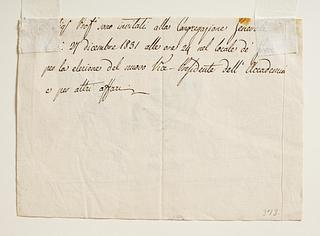 Sigf Proff sono invitati alla Congregazione Gener
27 dicembre 1831 alle ore 24 nel locale di
per la elezione del nuovo Vice-Presidente dell'Accademia
e per altri affari
313